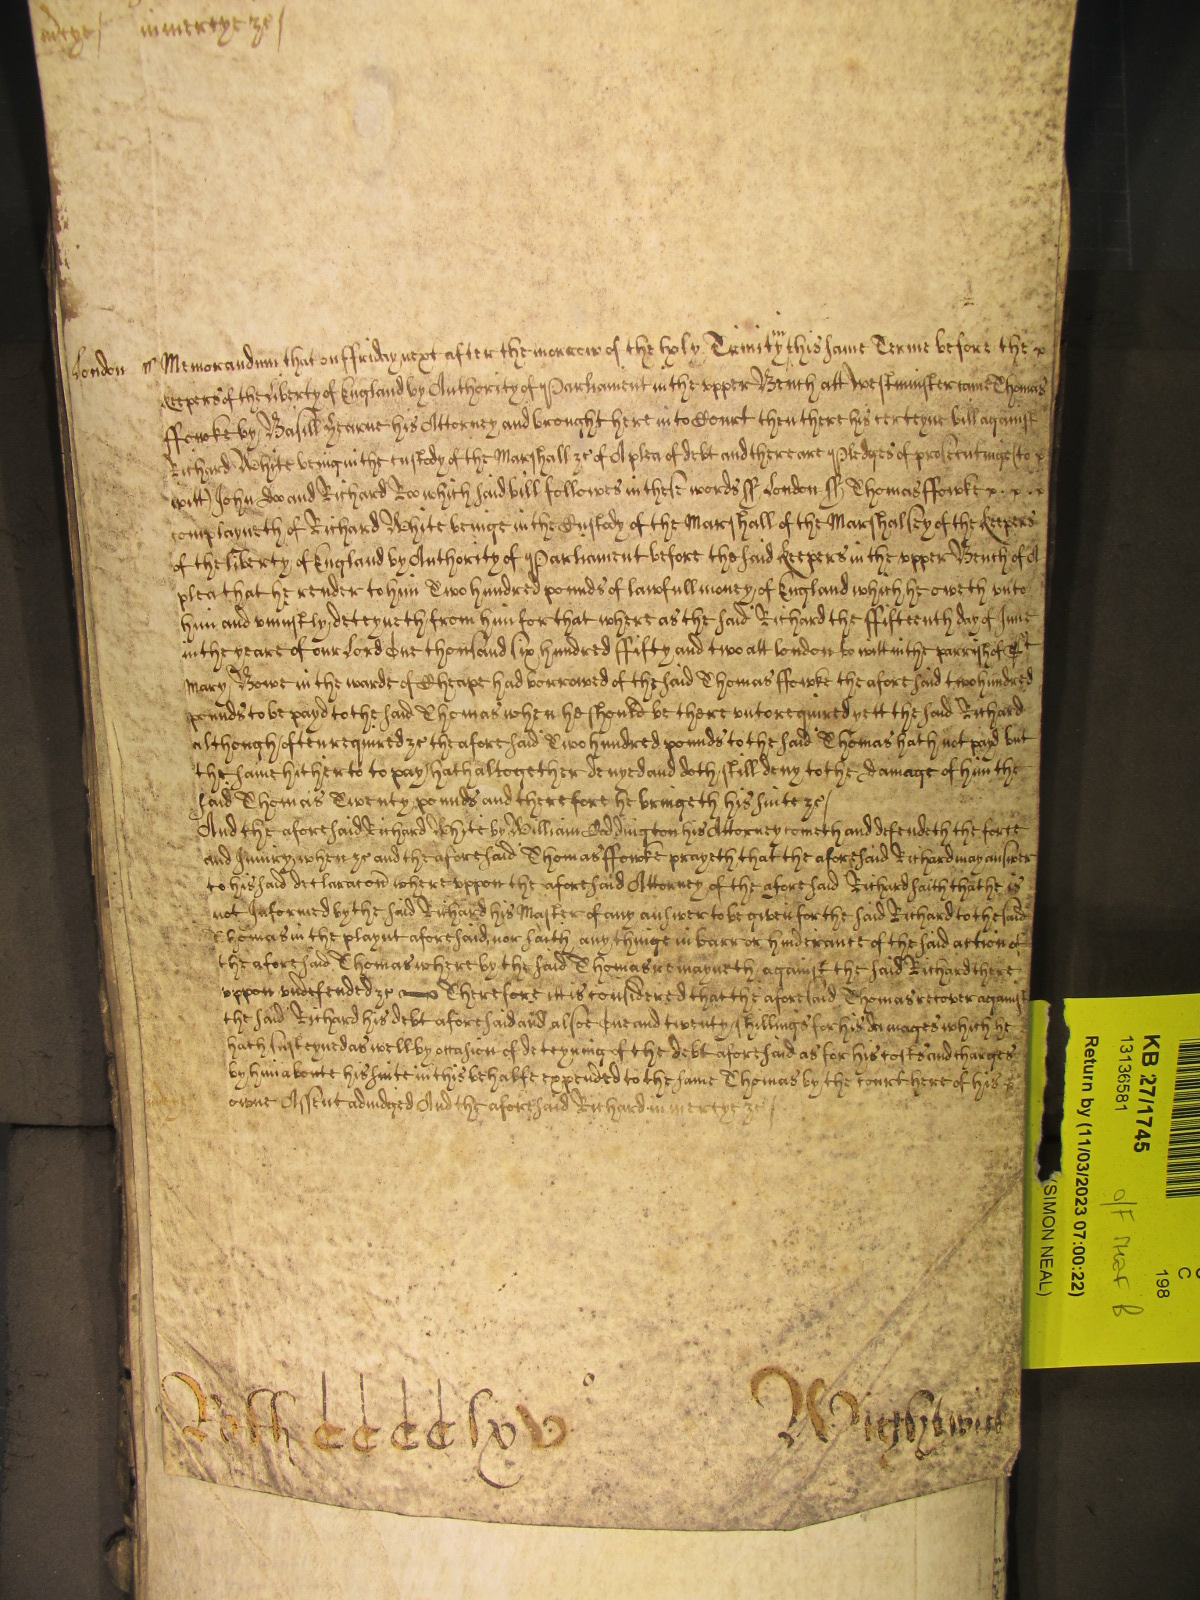 adige/ in mercye &c/
London ss Memorandum that on ffriday next after the morrow of the holy Trinity in this same Terme before the x
Keepers of the liberty of England by Authority of Parliament in the upper Bench att Westminster came Thomas
ffowke by Basill Hearne his Attorney and brought here into Court then there his certeyne bill against
Richard White being in the custody of the Marshall &c of A plea of debt and there are Pledges of prosecutinge (to x
witt) John Doo and Richard Roo which said bill followes in these words ss London ss Thomas ffowke x . x . x
complayneth of Richard White beinge in the Custody of the Marshall of the Marshalsey of the Keepers
of the liberty of England by Authority of Parliament before the said Keepers in the upper Bench of A
plea that he render to him Two hundred pounds of lawfull money of England which he oweth unto
him and uniustly deteyneth from him for that where as the said Richard the ffifteenth day of June
in the yeare of our Lord One thousand six hundred ffifty and two att London to witt in the parrish of St
Mary Bowe in the warde of Cheape had borrowed of the said Thomas ffowke the aforesaid two hundred
pounds to be payd to the said Thomas when he should be there unto required yett the said Richard
although often required &c the aforesaid Two hundred pounds to the said Thomas hath not payd but
the same hitherto to pay hath altogether denyed and doth still deny to the damage of him the
said Thomas Twenty pounds and therefore he bringeth his suite &c/
And the aforesaid Richard White by William Doddington his Attorney cometh and defendeth the force
and Iniury when &c and the aforesaid Thomas ffowke prayeth that the aforesaid Richard may answer
to his said declaracon where uppon the aforesaid Attorney of the aforesaid Richard saith that he is
not Informed by the said Richard his Master of any answer to be given for the said Richard to the said
Thomas in the playnt aforesaid, nor saith any thinge in barr or hinderance of the said action of
the aforesaid Thomas where by the said Thomas remayneth against the said Richard there
uppon undefended &c Therefore itt is considered that the aforesaid Thomas recover against
the said Richard his debt aforesaid and alsoe One and twenty shillings for his damages which he
hath susteyned as well by occasion of deteyning of the debt aforesaid as for his costs and charges
by him aboute his suite in this behalfe expended to the same Thomas by the court here of his x
owne Assent adiudged And the aforesaid Richard in mercye &c/
Rosse cccclxv
Wightwick
KB 27/1745
13136581
Return by (11/03/2023 07:00:22)
(SIMON NEAL)
198
C